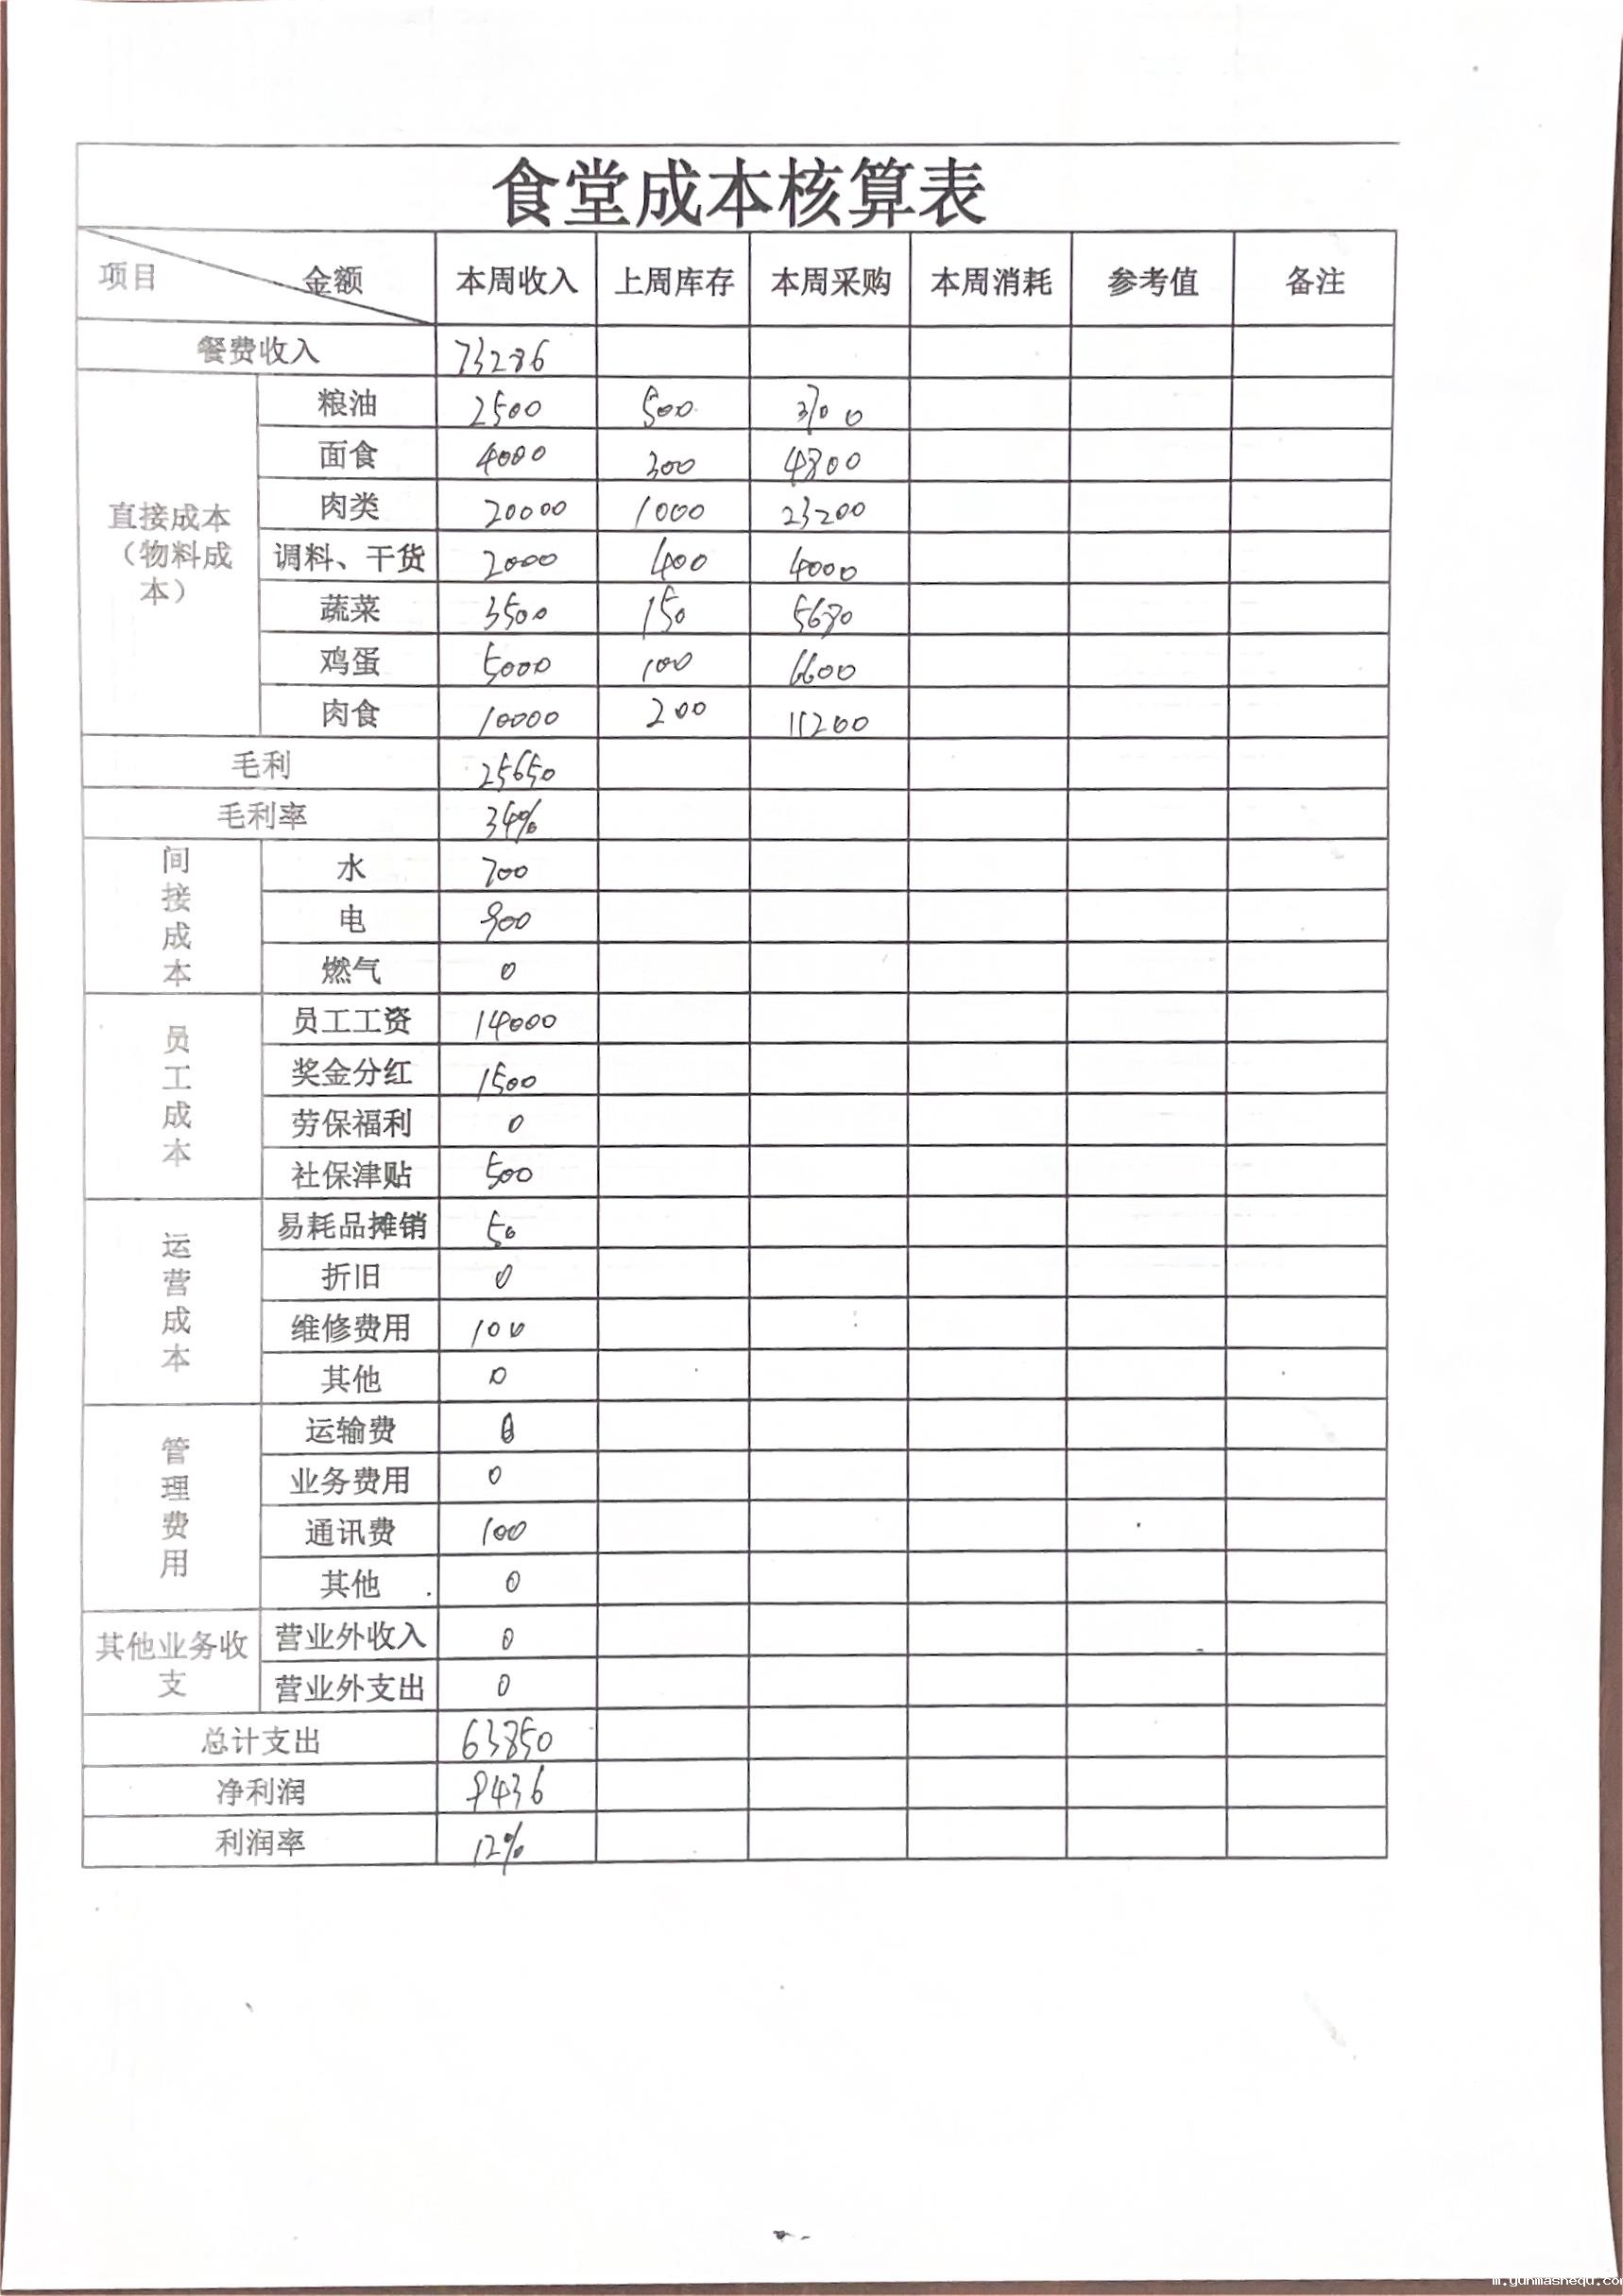 食堂成本核算表
项目 金额 本周收入 上周库存 本周采购 本周消耗 参考值 备注
餐费收入 73286
直接成本（物料成本）
粮油 2500 500 3700
面食 4000 300 4800
肉类 20000 1000 23200
调料、干货 2000 400 4000
蔬菜 3500 150 5680
鸡蛋 5000 100 6600
肉食 10000 200 11200
毛利 25650
毛利率 34%
间接成本
水 700
电 900
燃气 0
员工成本
员工工资 14000
奖金分红 1500
劳保福利 0
社保津贴 500
运营成本
易耗品摊销 50
折旧 0
维修费用 100
其他 0
管理费用
运输费 0
业务费用 0
通讯费 100
其他 0
其他业务收支
营业外收入 0
营业外支出 0
总计支出 63850
净利润 9436
利润率 12%